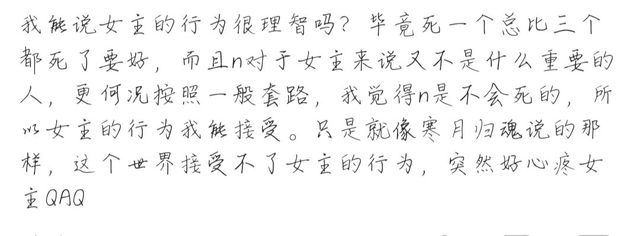 我能说女主的行为很理智吗？毕竟死一个总比三个
都死了要好，而且n对于女主来说又不是什么重要的
人，更何况按照一般套路，我觉得n是不会死的，所
以女主的行为我能接受。只是就像寒月归魂说的那
样，这个世界接受不了女主的行为，突然好心疼女
主QAQ